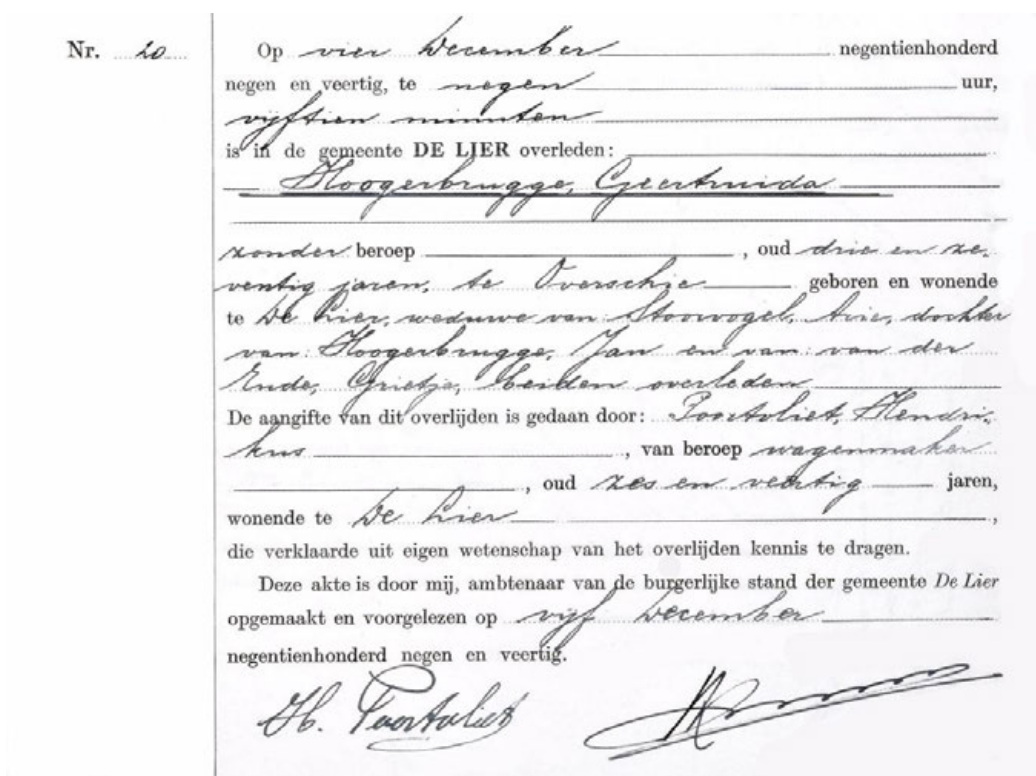 Nr. 20
Op vier December negentienhonderd
negen en veertig, te negen uur,
vijftien minuten
is in de gemeente DE LIER overleden:
Hoogerbrugge, Geertruida
zonder beroep , oud drie en ze-
ventig jaren, te Overschie geboren en wonende
te De Lier, weduwe van Stoorvogel, Arie, dochter
van Hoogerbrugge, Jan en van van der
Ende, Grietje, beiden overleden
De aangifte van dit overlijden is gedaan door: Poortvliet, Hendri-
kus , van beroep wagenmaker
, oud zes en veertig jaren,
wonende te De Lier ,
die verklaarde uit eigen wetenschap van het overlijden kennis te dragen.
Deze akte is door mij, ambtenaar van de burgerlijke stand der gemeente De Lier
opgemaakt en voorgelezen op vijf December
negentienhonderd negen en veertig.
H. Poortvliet